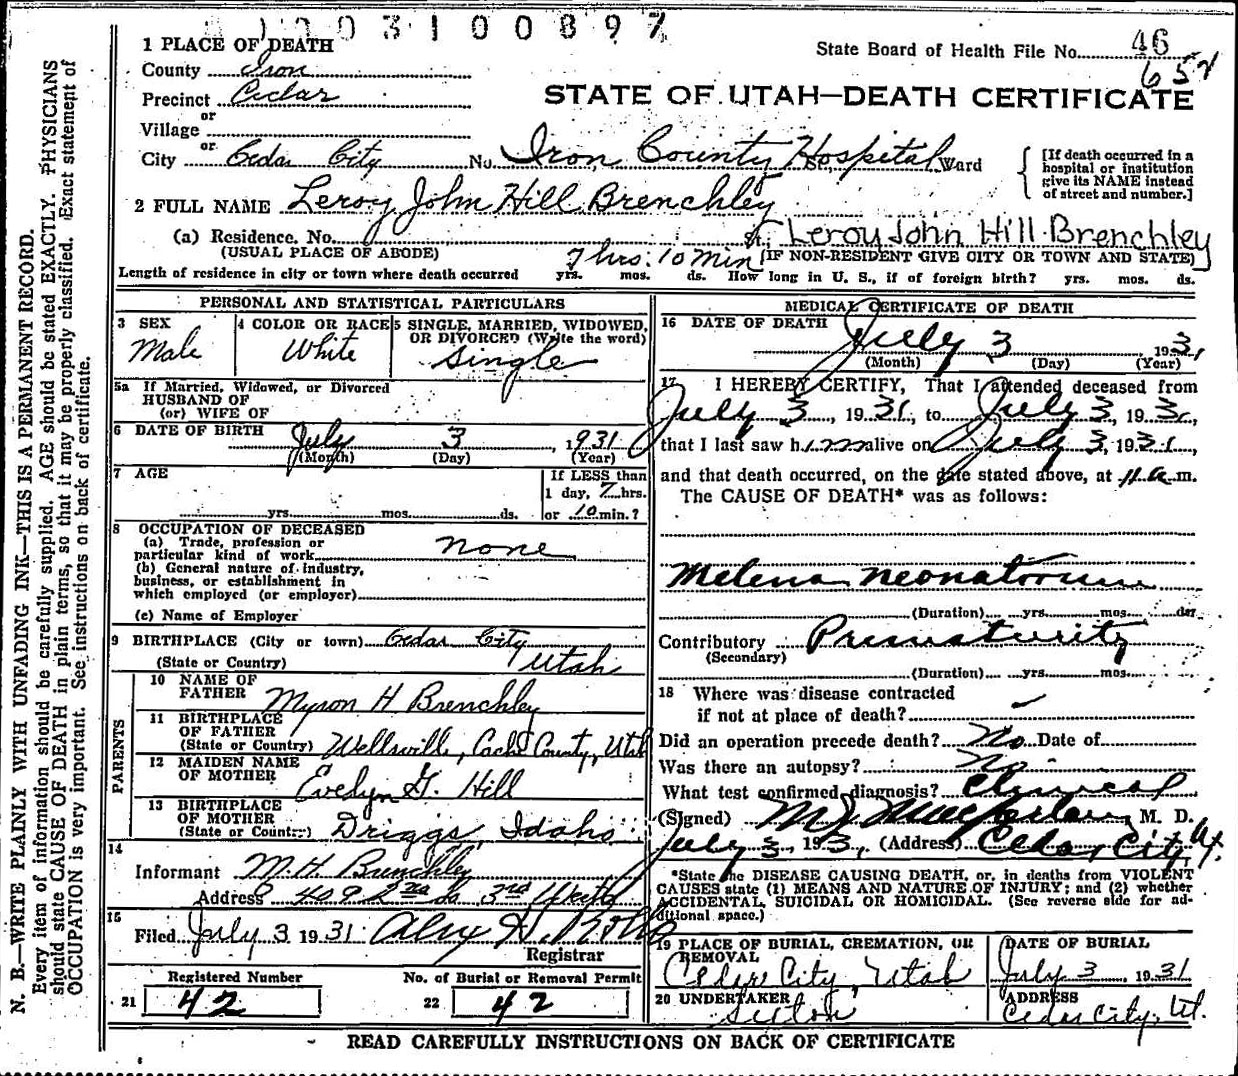 003100897
1 PLACE OF DEATH
State Board of Health File No. 46
652
County Iron
Precinct Cedar
STATE OF UTAH—DEATH CERTIFICATE
or
Village
or
City Cedar City No. Iron County Hospital St., Ward
[If death occurred in a hospital or institution give its NAME instead of street and number.]
2 FULL NAME Leroy John Hill Brenchley
(a) Residence. No. St. Leroy John Hill Brenchley
(USUAL PLACE OF ABODE) 7 hrs. 10 min (IF NON-RESIDENT GIVE CITY OR TOWN AND STATE)
Length of residence in city or town where death occurred yrs. mos. ds. How long in U. S., if of foreign birth? yrs. mos. ds.
PERSONAL AND STATISTICAL PARTICULARS
3 SEX Male
4 COLOR OR RACE White
5 SINGLE, MARRIED, WIDOWED, OR DIVORCED (Write the word) Single
5a If Married, Widowed, or Divorced
HUSBAND OF
(or) WIFE OF
6 DATE OF BIRTH July 3, 1931
(Month) (Day) (Year)
7 AGE
yrs. mos. ds.
If LESS than
1 day, 7 hrs.
or 10 min.?
8 OCCUPATION OF DECEASED
(a) Trade, profession or
particular kind of work none
(b) General nature of industry,
business, or establishment in
which employed (or employer)
(c) Name of Employer
9 BIRTHPLACE (City or town) Cedar City
(State or Country) Utah
PARENTS
10 NAME OF
FATHER Myron H Brenchley
11 BIRTHPLACE
OF FATHER
(State or Country) Wellsville, Cache County, Utah
12 MAIDEN NAME
OF MOTHER Evelyn G. Hill
13 BIRTHPLACE
OF MOTHER
(State or Country) Driggs, Idaho
14
Informant M. H. Brenchley
Address 409 2nd So 3rd West
15
Filed July 3 1931
Registrar
Registered Number No. of Burial or Removal Permit
21 42 22 42
MEDICAL CERTIFICATE OF DEATH
16 DATE OF DEATH July 3 1931
(Month) (Day) (Year)
17 I HEREBY CERTIFY, That I attended deceased from
July 3, 1931, to July 3, 1931,
that I last saw him alive on July 3, 1931,
and that death occurred, on the date stated above, at 11 a.m.
The CAUSE OF DEATH* was as follows:
Melena neonatorum
(Duration) yrs. mos. ds.
Contributory Prematurity
(Secondary)
(Duration) yrs. mos.
18 Where was disease contracted
if not at place of death?
Did an operation precede death? No Date of
Was there an autopsy? No
What test confirmed diagnosis? Clinical
(Signed) M. D.
July 3, 1931, (Address) Cedar City, Ut.
*State the DISEASE CAUSING DEATH, or, in deaths from VIOLENT
CAUSES state (1) MEANS AND NATURE OF INJURY; and (2) whether
ACCIDENTAL, SUICIDAL OR HOMICIDAL. (See reverse side for ad-
ditional space.)
19 PLACE OF BURIAL, CREMATION, OR
REMOVAL
Cedar City, Utah
DATE OF BURIAL
July 3, 1931
20 UNDERTAKER
Sexton
ADDRESS
Cedar City, Ut.
READ CAREFULLY INSTRUCTIONS ON BACK OF CERTIFICATE
N. B.—WRITE PLAINLY WITH UNFADING INK—THIS IS A PERMANENT RECORD.
Every item of information should be carefully supplied. AGE should be stated EXACTLY. PHYSICIANS
should state CAUSE OF DEATH in plain terms, so that it may be properly classified. Exact statement of
OCCUPATION is very important. See instructions on back of certificate.